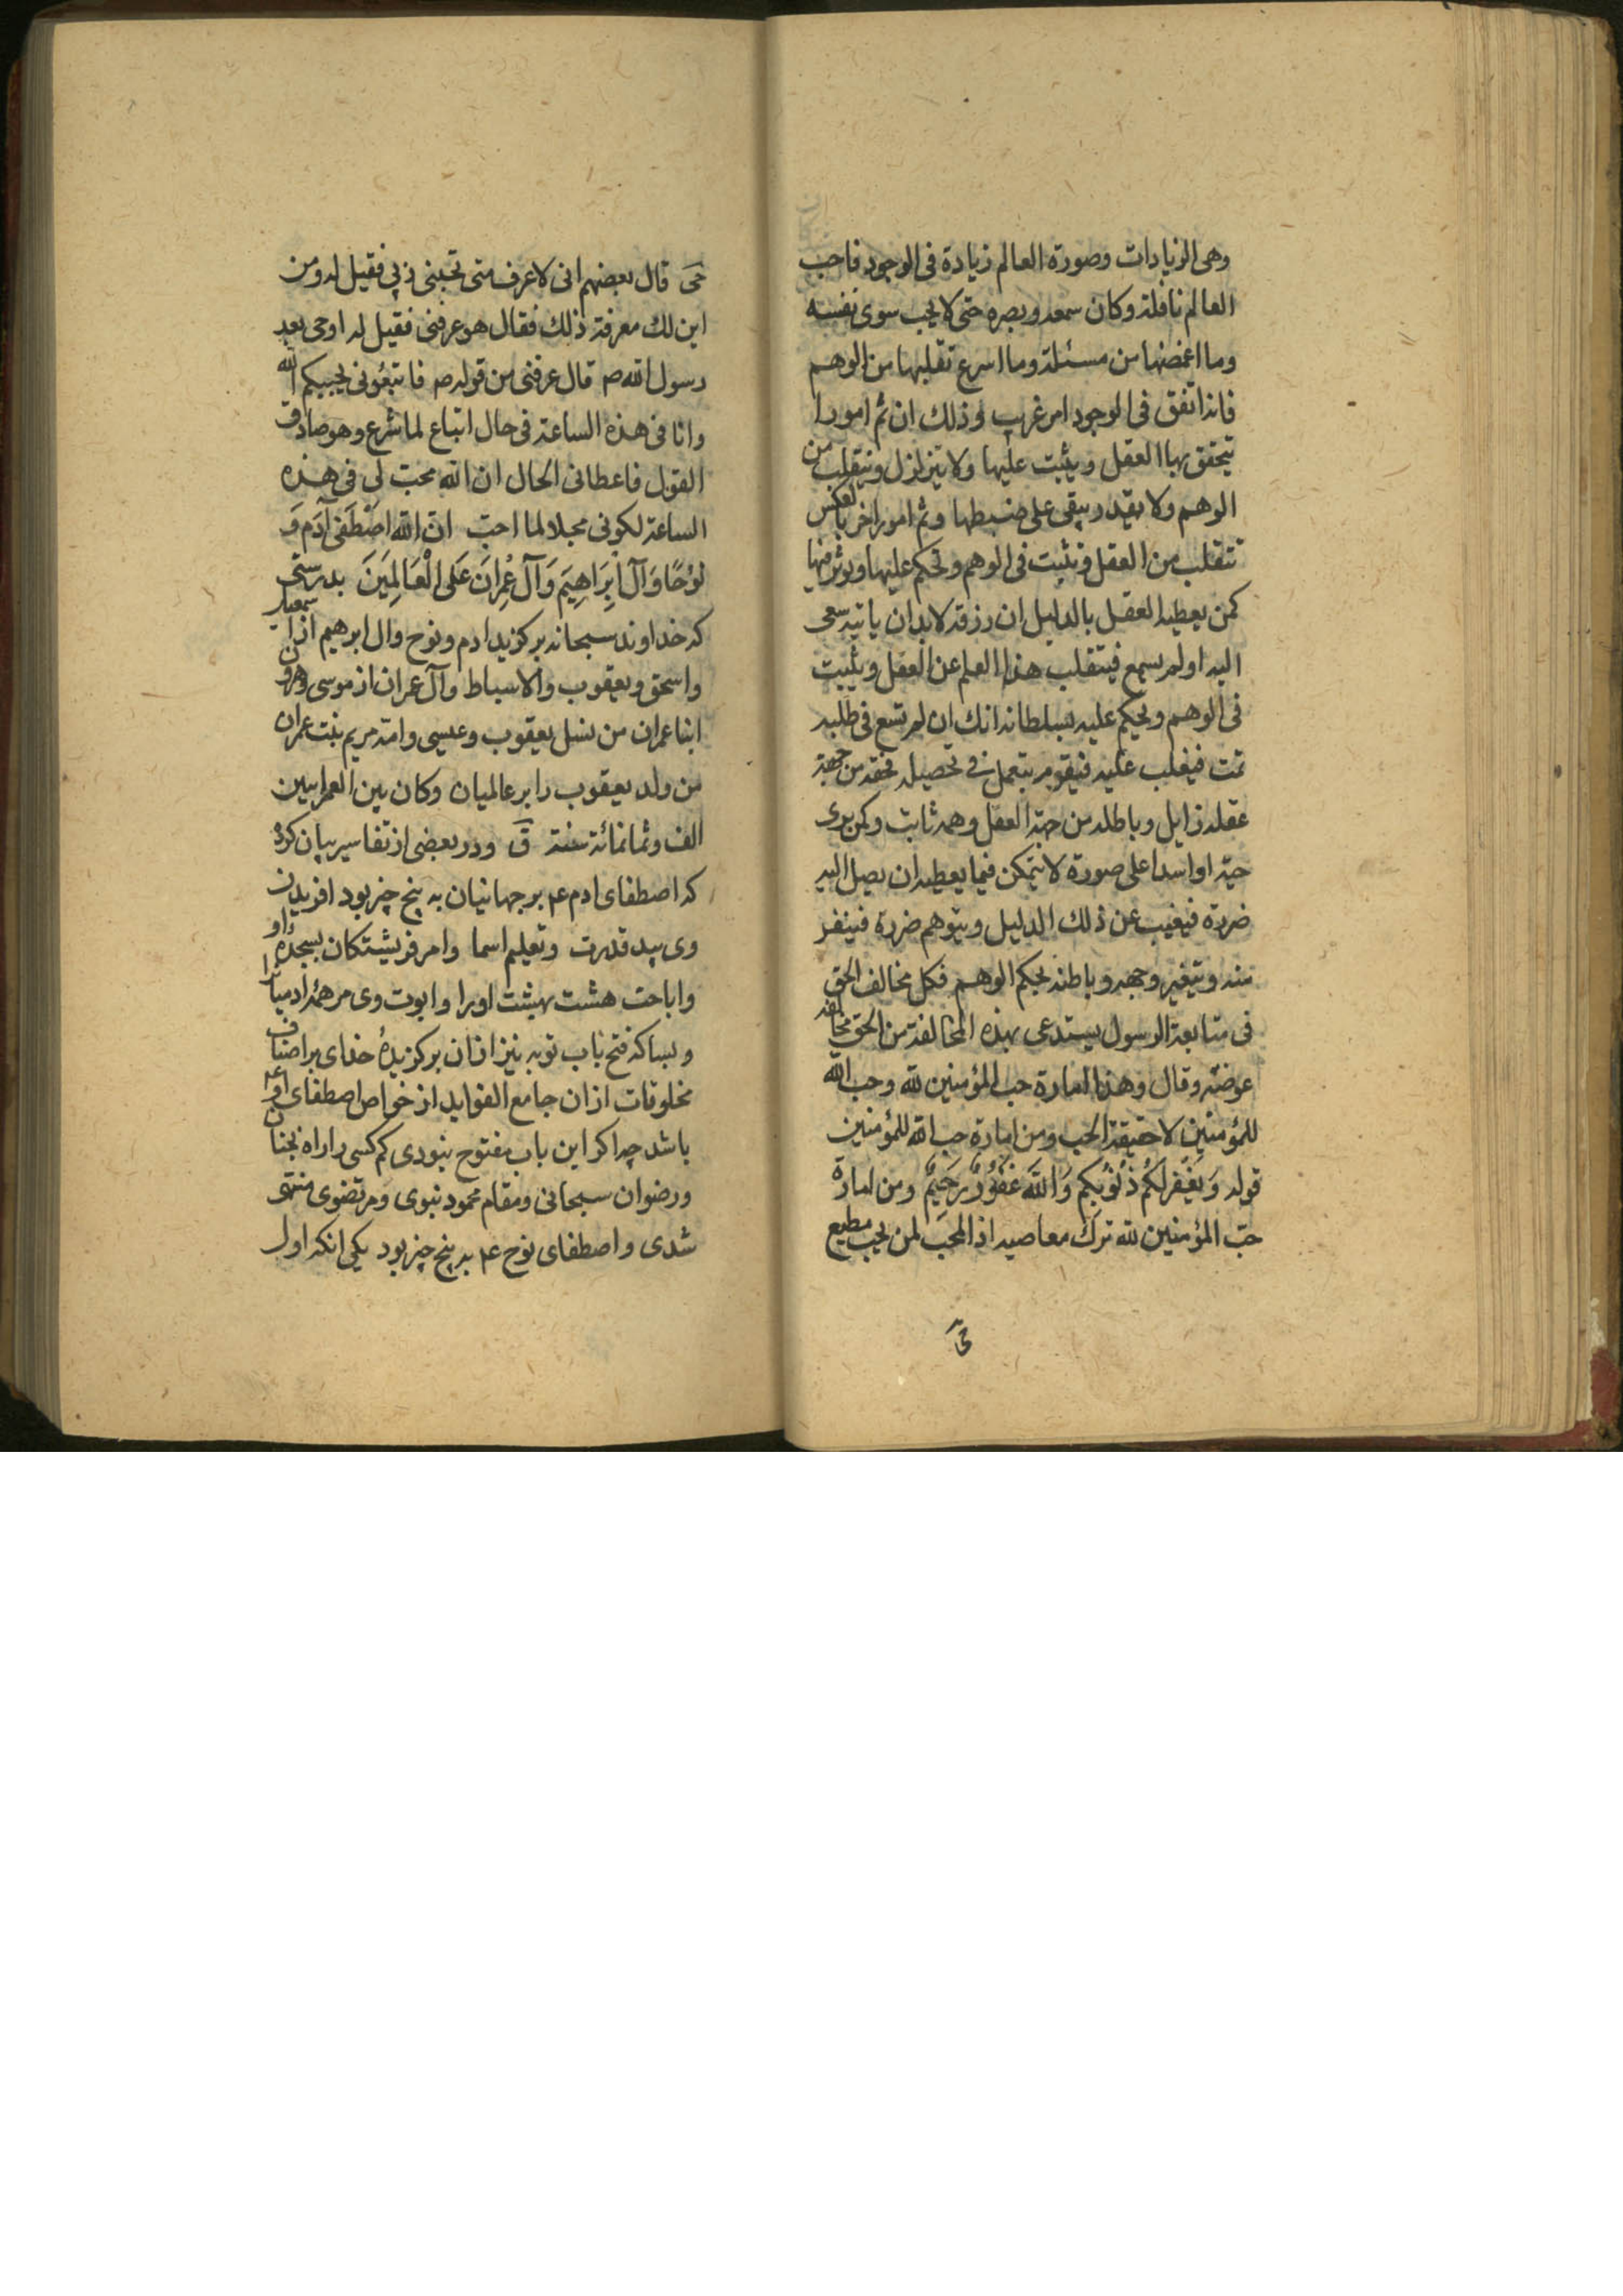 وهی الزیادات وصورة العالم زیادة فی الوجود فاحب
العالم نافلة وکان سمعه وبصره حتی لا یحب سوی نفسه
وما اغمضها من مسئلة وما اسرع تقلبها من الوهم
فانه اتفق فی الوجود امر غریب وذلک ان ثم امورا
یتحقق بها العقل ویثبت علیها ولا یتزلزل ویتقلب من
الوهم ولا یقدر یبقی علی ضبطها وثم امور اخر بالعکس
تتقلب من العقل وتثبت فی الوهم وتحکم علیها ویوثر فیها
کمن یعطیه العقل بالدلیل ان رزقه لا بد ان یاتیه سعی
الیه اولم یسع فیتقلب هذا العلم عن العقل ویثبت
فی الوهم ویحکم علیه بسلطانه انک ان لم تسع فی طلبه
تمت فیغلب علیه فیقوم یتعمل فی تحصیله فحقه من جهة
عقله زایل وباطله من جهة العقل وهمه ثابت وکمن یری
حیة او اسدا علی صورة لا یتمکن فیما یعطیه ان یصل الیه
ضرره فیغیب عن ذلک الدلیل ویتوهم ضرره فینفر
منه ویتغیر وجهه وباطنه بحکم الوهم فکل مخالف الحق
فی متابعة الرسول یستدعی بهذه المخالفة من الحق مخالفة
عوضه وقال وهذا امارة حب المؤمنین لله وحب الله
للمؤمنین لا حقیقة الحب ومن امارة حب الله للمؤمنین
قوله وَیَغْفِرْ لَکُمْ ذُنُوبَکُمْ وَاللّهُ غَفُورٌ رَحِیمٌ ومن امارة
حبّ المؤمنین لله ترک معاصیه اذ المحبّ لمن یحب مطیع
حیّ
حیّ قال بعضهم انی لاعرف متی تحبنی ربی فقیل له ومن
این لک معرفة ذلک فقال هو عرفنی فقیل له اوحی بعد
رسول الله ص قال عرفنی من قوله ص فاتبعونی یحببکم الله
وانا فی هذه الساعة فی حال اتباع لما شرع وهو صادق
القول فاعطانی الحال ان الله محب لی فی هذه
الساعة لکونی مجلا لما احبّ انّ الله اصْطَفی آدَمَ وَ
نُوحًا وَآلَ اِبْرَاهِیمَ وَآلَ عِمْرانَ عَلَی الْعَالَمِینَ بدرستی
که خداوند سبحانه برکزید ادم ونوح وال ابرهیم از اسمعیل
واسحق ویعقوب والاسباط وآل عمران از موسی وهرون
ابنا عمران من نسل یعقوب وعیسی وامه مریم بنت عمران
من ولد یعقوب را بر عالمیان وکان بین العمرانین
الف وثمانمائة سنة ق ودر بعضی از تفاسیر بیان کرده
که اصطفای ادم ع بر جهانیان به پنج چیز بود افریدن
وی بید قدرت وتعلیم اسما وامر فریشتکان بسجده او
واباحت هشت بهشت اورا وابوت وی مر همه ادمیان را
وبسا که فتح باب توبه نیز ازان برکزیدهٔ خدای بر اصناف
مخلوقات ازان جامع الفواید از خواص اصطفای او ع
باشد چه اکر این باب مفتوح نبودی کم کسی را راه بجنان
ورضوان سبحانی ومقام محمود نبوی ومرتضوی منتهی
شدی واصطفای نوح ع به پنج چیز بود یکی انکه اول